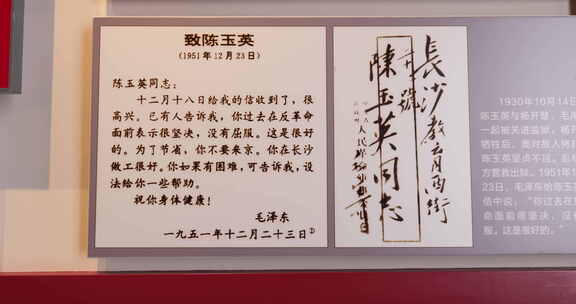 致陈玉英
（1951年12月23日）
陈玉英同志：
十二月十八日给我的信收到了，很
高兴。已有人告诉我，你过去在反革命
面前表示很坚决，没有屈服。这是很好
的。为了节省，你不要来京。你在长沙
做工很好。你如果有困难，可告诉我，设
法给你一些帮助。
祝你身体健康！
毛泽东
一九五一年十二月二十三日②
长沙教育西街
号
陈玉英同志
人民
1930年10月14日
陈玉英与杨开慧、毛
一起被关进监狱，杨开
牺牲后，面对敌人拷
陈玉英坚贞不屈，后
方营救出狱。1951年1
23日，毛泽东给陈玉
信中说：“你过去在
命面前很坚决，没
服。这是很好的。”